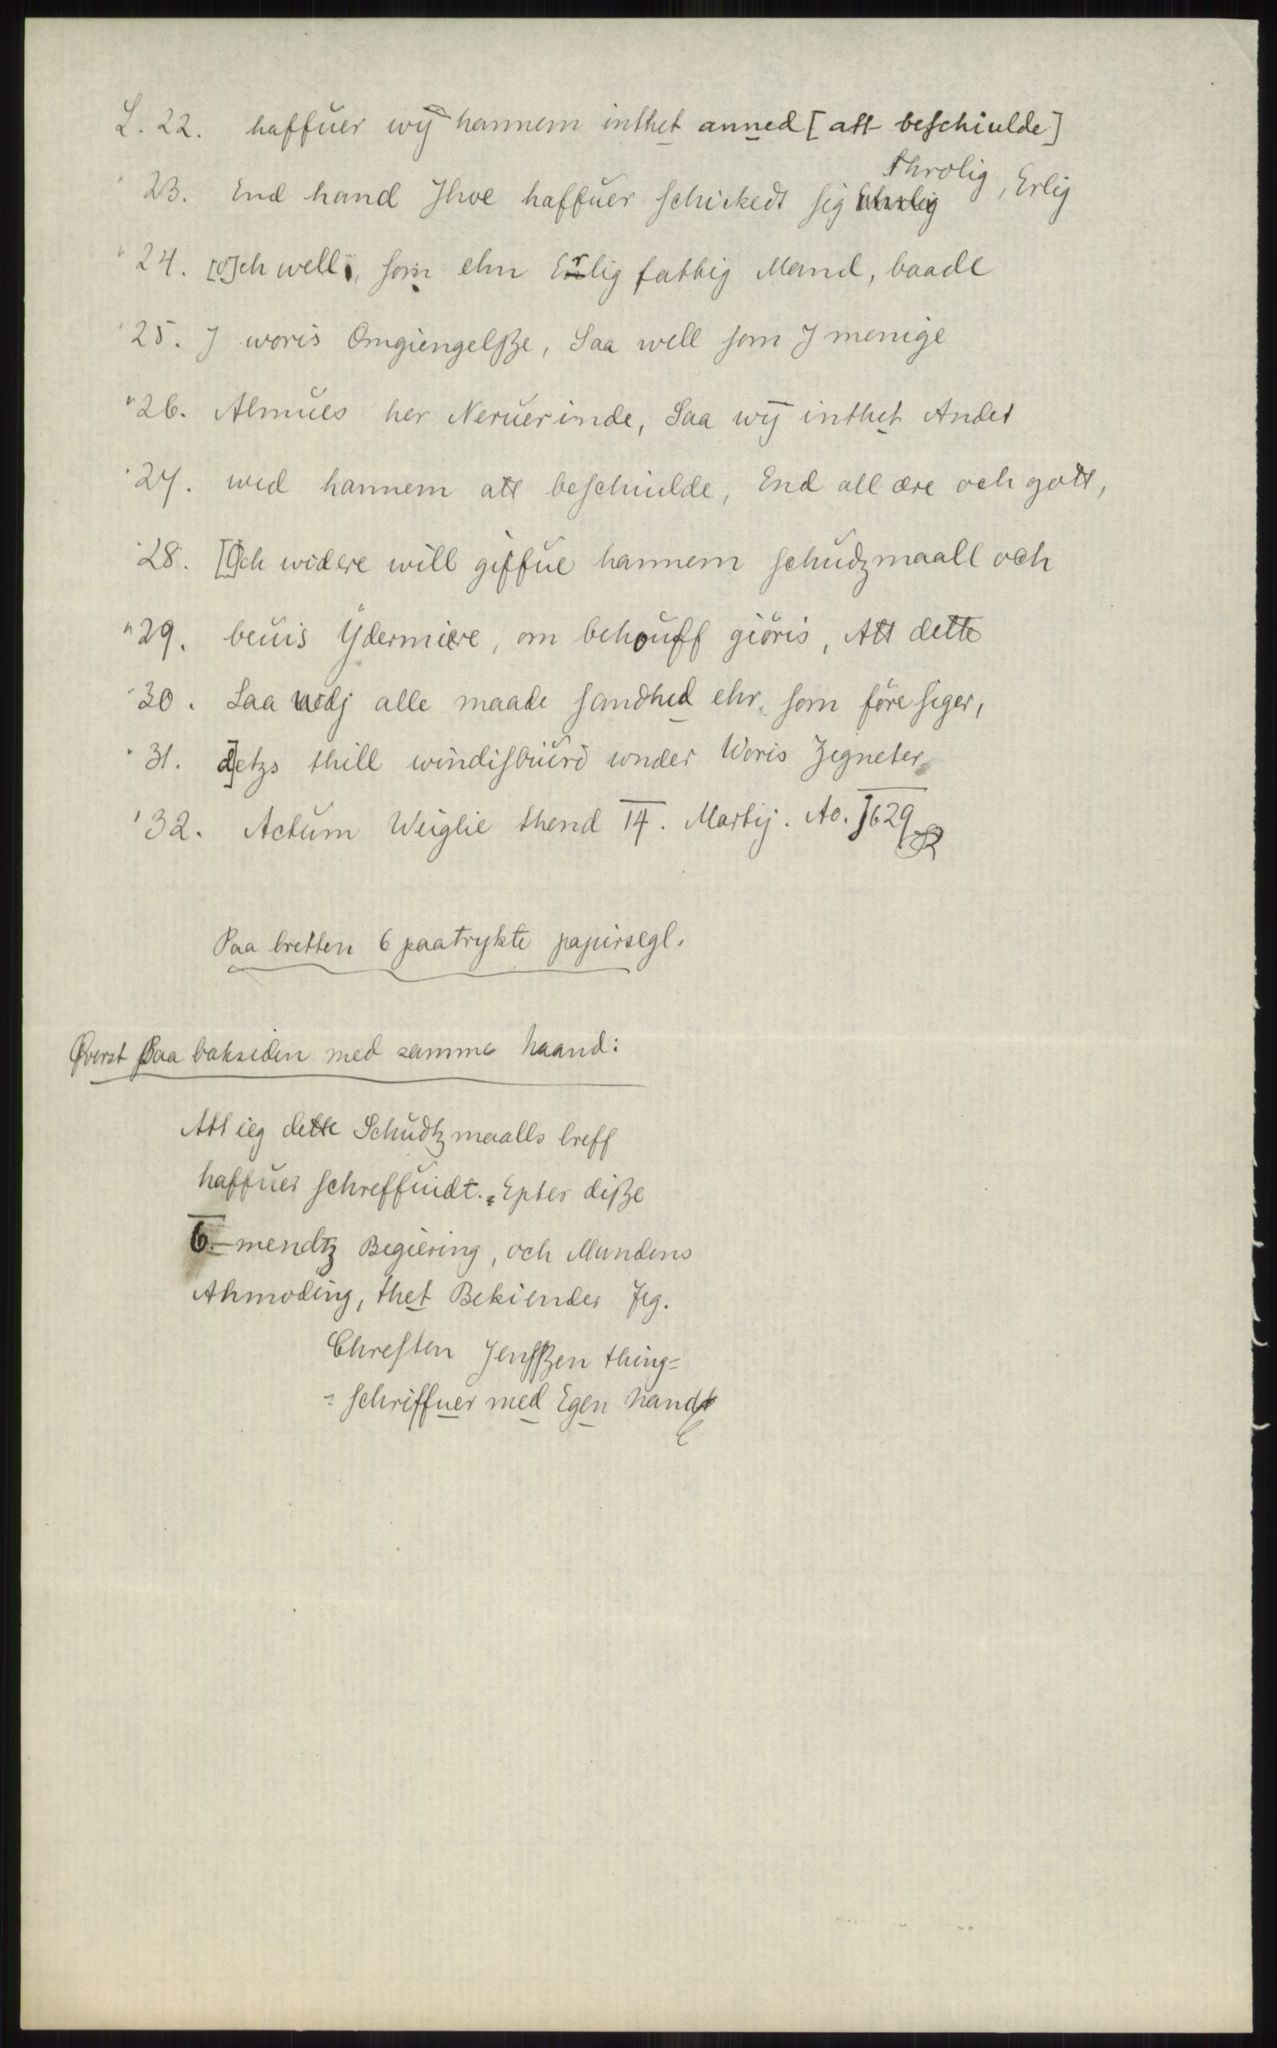 L. 22. haffuer wij hannem inthet anned [att beschiulde]
" 23. End hand Jhoe haffuer schickedt sig throlig, Erlig
" 24. [o]ch well, som ehn Erlig fattig Mand, baade
" 25. J woris Omgiengelsze, Saa well som J menige
" 26. Almues her Neruerinde, Saa wij inthet Andet
" 27. wed hannem att beschiulde, End all ære och gott,
" 28. [O]ch widere will giffue hannem schudzmaall och
" 29. beuis Ydermiere, om behouff giöris, Att dette
" 30. Saa udj alle maade sandhed ehr, som före siger,
" 31. d]etzs thill windisbiürd wnder Woris Zegneter
" 32. Actum Weiglie thend 14. Martij. Ao. 1629
Paa bretten 6 paatrykte papirsegl.
Øverst paa baksiden med samme haand:
Att ieg dette Schudtzmaalls breff
haffuer schreffuidt. Epter disze
6 mendtz Begiering, och Mandens
Anmoding, thet Bekiender Jeg.
Chresten Jensszen thing=
=schriffuer med Egen handt